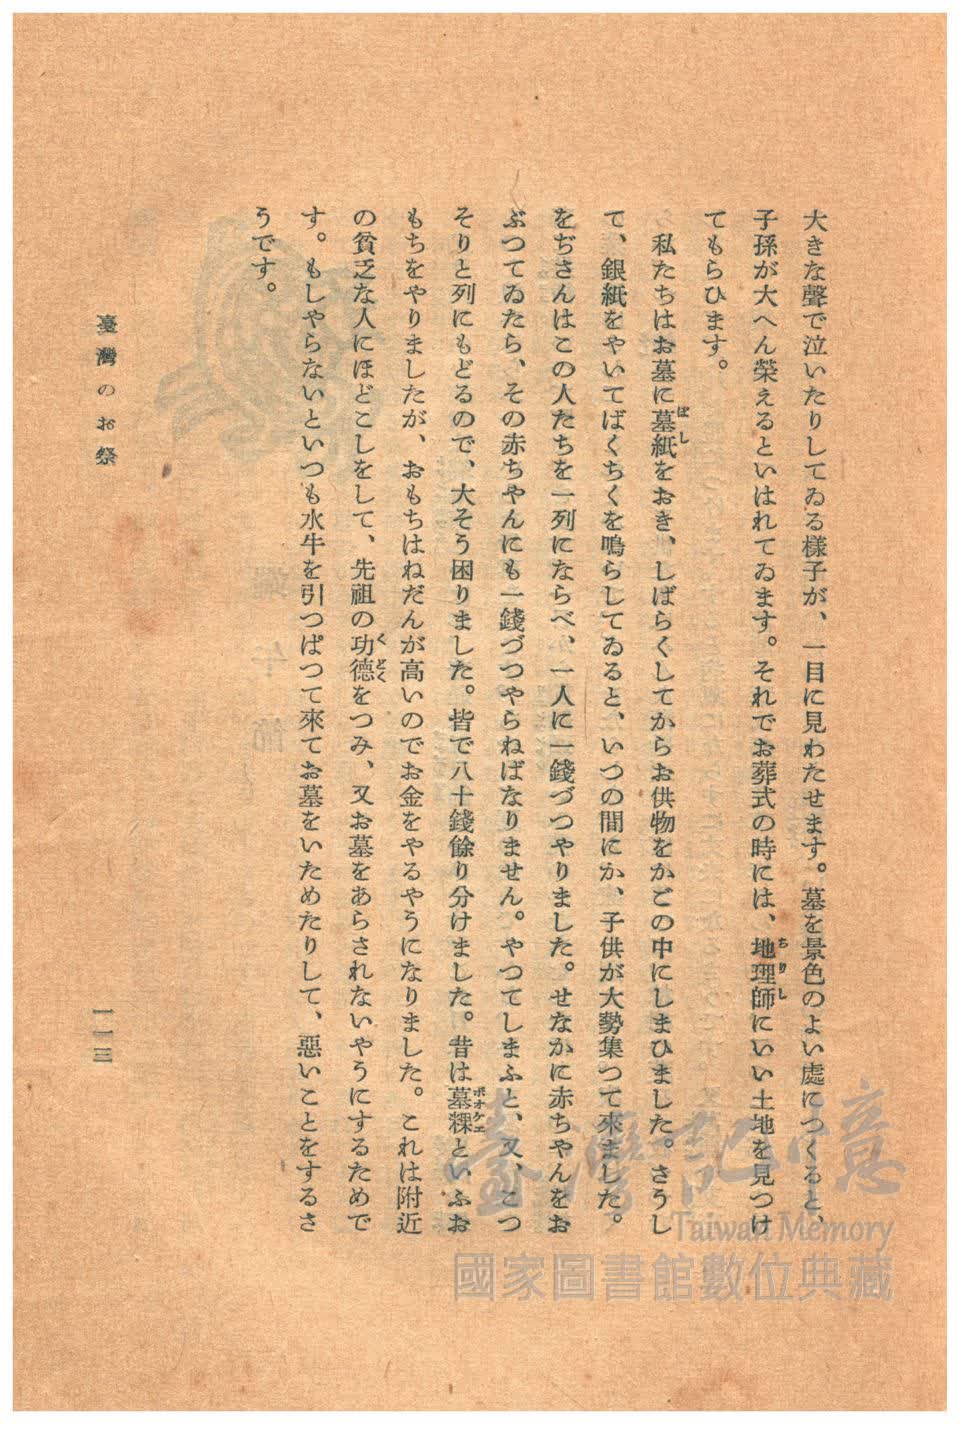 大きな聲で泣いたりしてゐる樣子が、一目に見わたせます。墓を景色のよい處につくると、
子孫が大へん榮えるといはれてゐます。それでお葬式の時には、地理師にいい土地を見つけ
ちりし
てもらひます。
私たちはお墓に墓紙をおき、しばらくしてからお供物をかごの中にしまひました。さうし
ぼし
て、銀紙をやいてばくちくを鳴らしてゐると、いつの間にか、子供が大勢集つて來ました。
をぢさんはこの人たちを一列にならべ、一人に一錢づつやりました。せなかに赤ちやんをお
ぶつてゐたら、その赤ちやんにも一錢づつやらねばなりません。やつてしまふと、又、こつ
そりと列にもどるので、大そう困りました。皆で八十錢餘り分けました。昔は墓粿といふお
ボオケエ
もちをやりましたが、おもちはねだんが高いのでお金をやるやうになりました。これは附近
の貧乏な人にほどこしをして、先祖の功德をつみ、又お墓をあらされないやうにするためで
くどく
す。もしやらないといつも水牛を引つぱつて來てお墓をいためたりして、惡いことをするさ
うです。
臺灣のお祭
一一三
臺灣記憶
Taiwan Memory
國家圖書館數位典藏